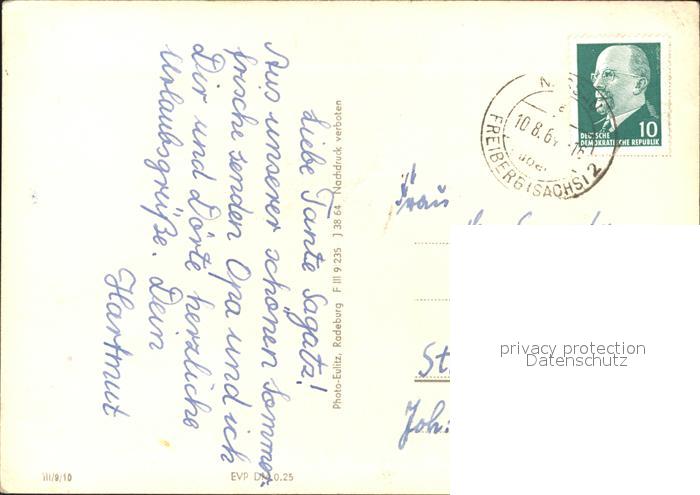 Liebe Tante Sagatz!
Aus unserer schönen Sommer-
frische senden Opa und ich
Dir und Dörte herzliche
Urlaubsgrüße. Dein
Hartmut
Photo-Eulitz, Radeburg F III 9 235 J 38 64 Nachdruck verboten
10
DEUTSCHE
DEMOKRATISCHE REPUBLIK
10.8.64
FREIBERG (SACHS) 2
Frau
St
Joh
privacy protection
Datenschutz
III/9/10
EVP DM 0.25